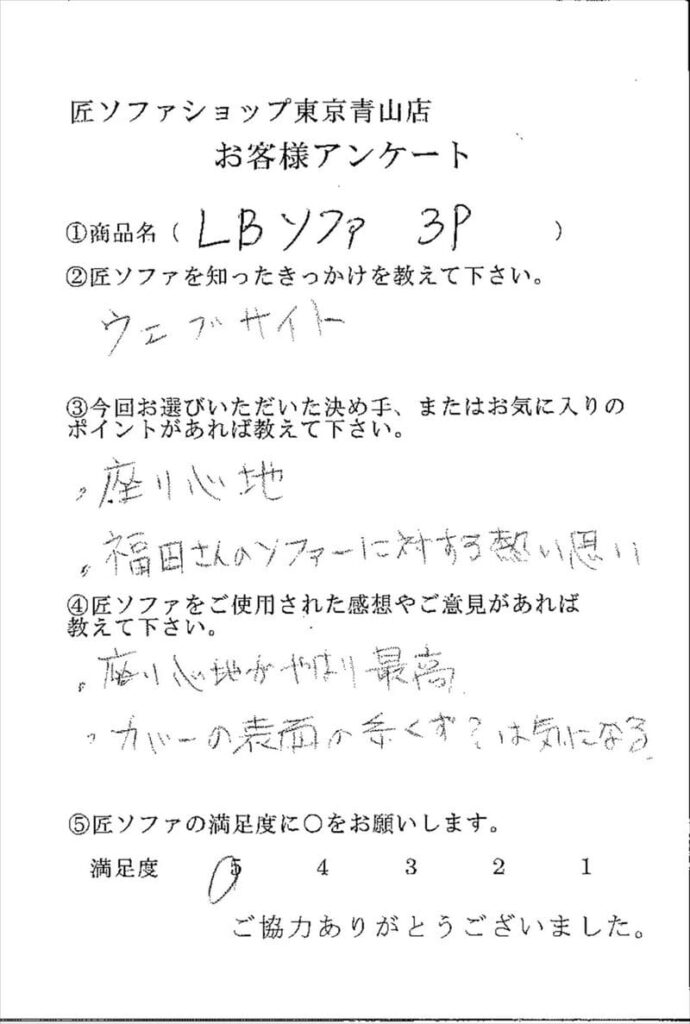 匠ソファショップ東京青山店
お客様アンケート
①商品名（ LBソファ 3P ）
②匠ソファを知ったきっかけを教えて下さい。
ウェブサイト
③今回お選びいただいた決め手、またはお気に入りの
ポイントがあれば教えて下さい。
・座り心地
・福田さんのソファーに対する熱い思い
④匠ソファをご使用された感想やご意見があれば
教えて下さい。
・座り心地がやはり最高
・カバーの表面の糸くず？は気になる
⑤匠ソファの満足度に〇をお願いします。
満足度 5 4 3 2 1
ご協力ありがとうございました。